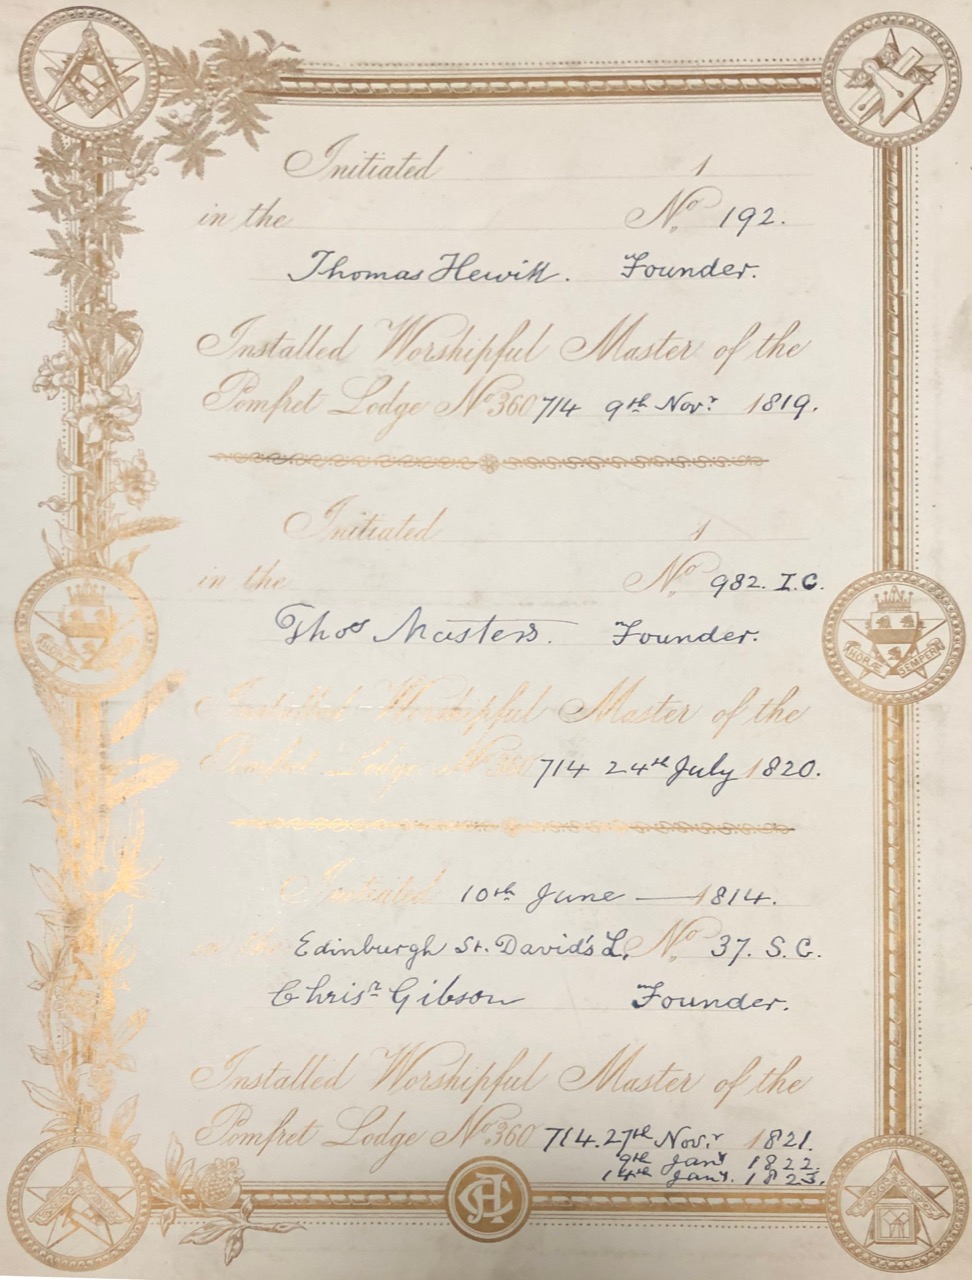 Initiated 1
in the No 192.
Thomas Hewitt. Founder.
Installed Worshipful Master of the
Pomfret Lodge No 360 714 9th Novr 1819.
Initiated 1
in the No 982. I.C.
Thos Masters. Founder.
Installed Worshipful Master of the
Pomfret Lodge No 360 714 24th July 1820.
Initiated 10th June — 1814.
in the Edinburgh St. David's L. No 37. S.C.
Chrisr Gibson Founder.
Installed Worshipful Master of the
Pomfret Lodge No 360 714. 27th Novr 1821.
9th Jany 1822.
14th Jany. 1823.
SEMPER